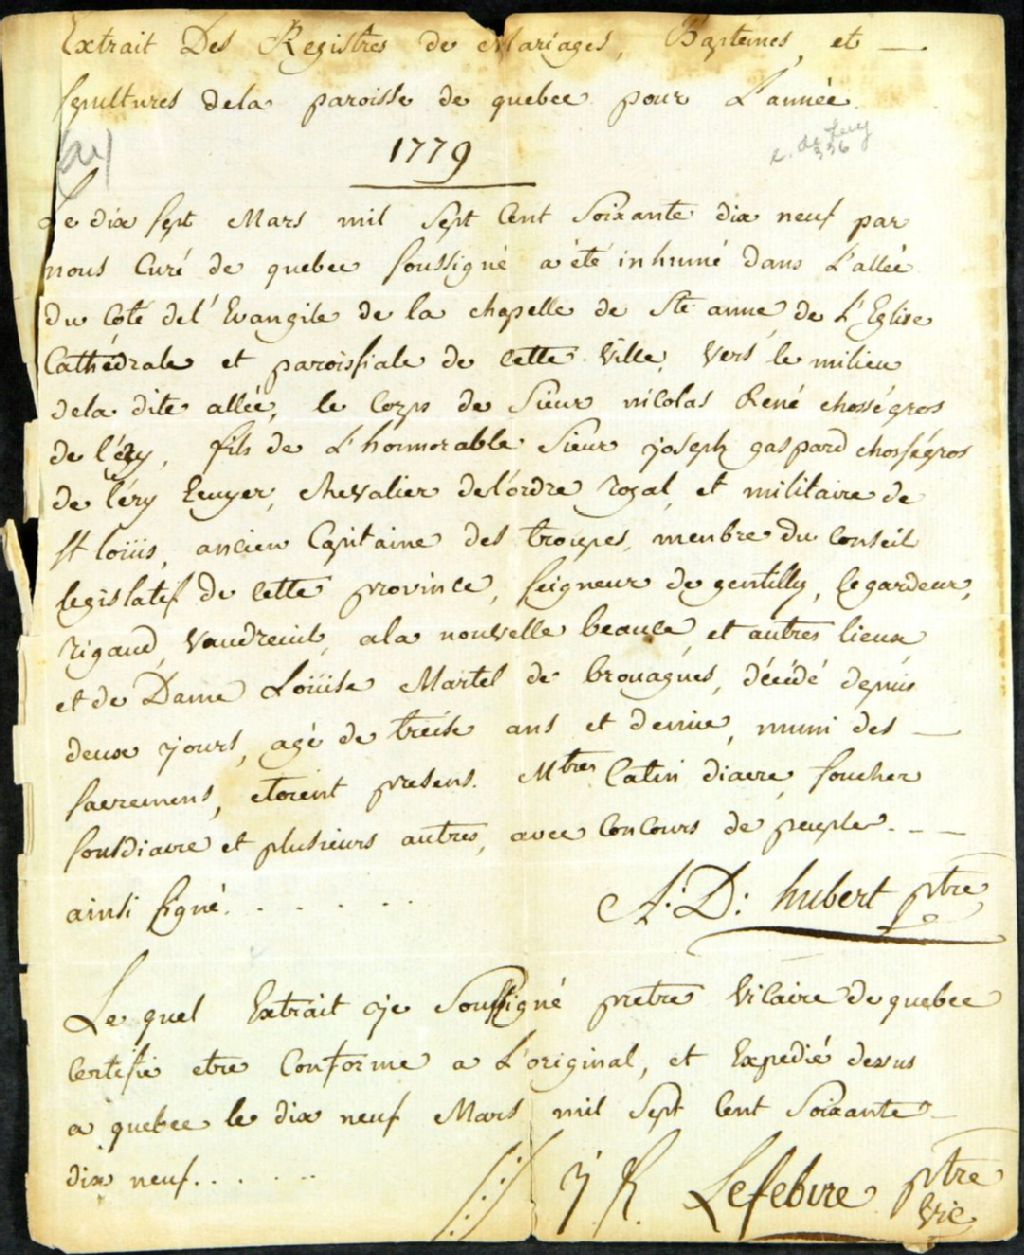 Extrait Des Registres de Mariages, Baptêmes, et —
sepultures dela paroisse de quebec pour L'année
1779
Le dix sept Mars mil sept Cent Soixante dix neuf par
nous Curé de quebec soussigné a été inhumé dans L'allée
du Coté del'Evangile de la chapelle de Ste anne de L'Eglise
Cathédrale et paroissiale de Cette Ville, Vers le milieu
dela dite allée, le Corps de Sieur nicolas René chosségros
de l'éry, fils de L'honnorable Sieur joseph gaspard chosségros
de léry Ecuyer, chevalier del'ordre royal et militaire de
st loüis, ancien Capitaine des troupes, menbre du Conseil
legislatif de Cette province, seigneur de gentilly, legardeur,
rigaud Vaudreuil, ala nouvelle beauce, et autres lieux
et de Dame Loüise Martel de brouagues, décédé depuis
deux jours, agé de treise ans et demie, muni des —
sacremens, etoient presens. Mtres Catin diacre, foucher
sousdiacre et plusieurs autres, avec Concours de peuple. — —
ainsi signé. . . . . .
A: D: hubert ptre
Le quel Extrait je Soussigné pretre Vicaire de quebec
Certifie etre Conforme a L'original, et Expedié dessus
a quebec le dix neuf Mars mil Sept Cent Soixante —
dix neuf. . . . . .
j R Lefebvre ptre
Vic